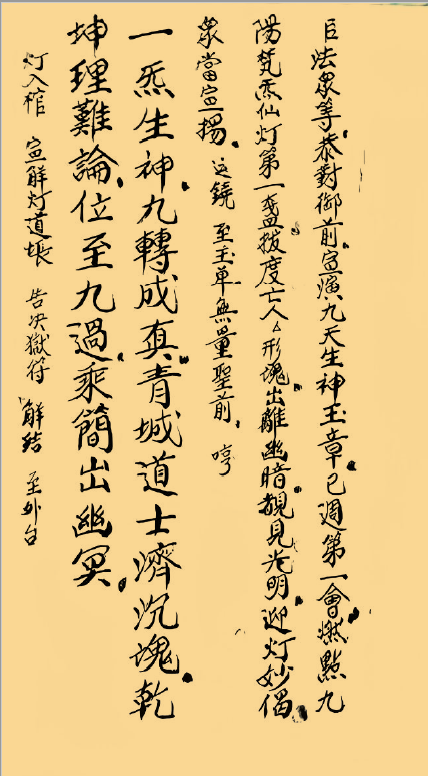 臣法眾等恭對御前宣演九天生神玉章已週第一會燃點九
陽梵炁仙灯第一盞拔度亡人厶形魂出離幽暗覩見光明迎灯妙偈
眾當宣揚 送鐃 至玉单無量聖前 哼
一炁生神九轉成真青城道士濟沉魂乾
坤理難論位至九過乘簡出幽冥
灯入棺 宣解灯道場 告决獄符 解結 至外台